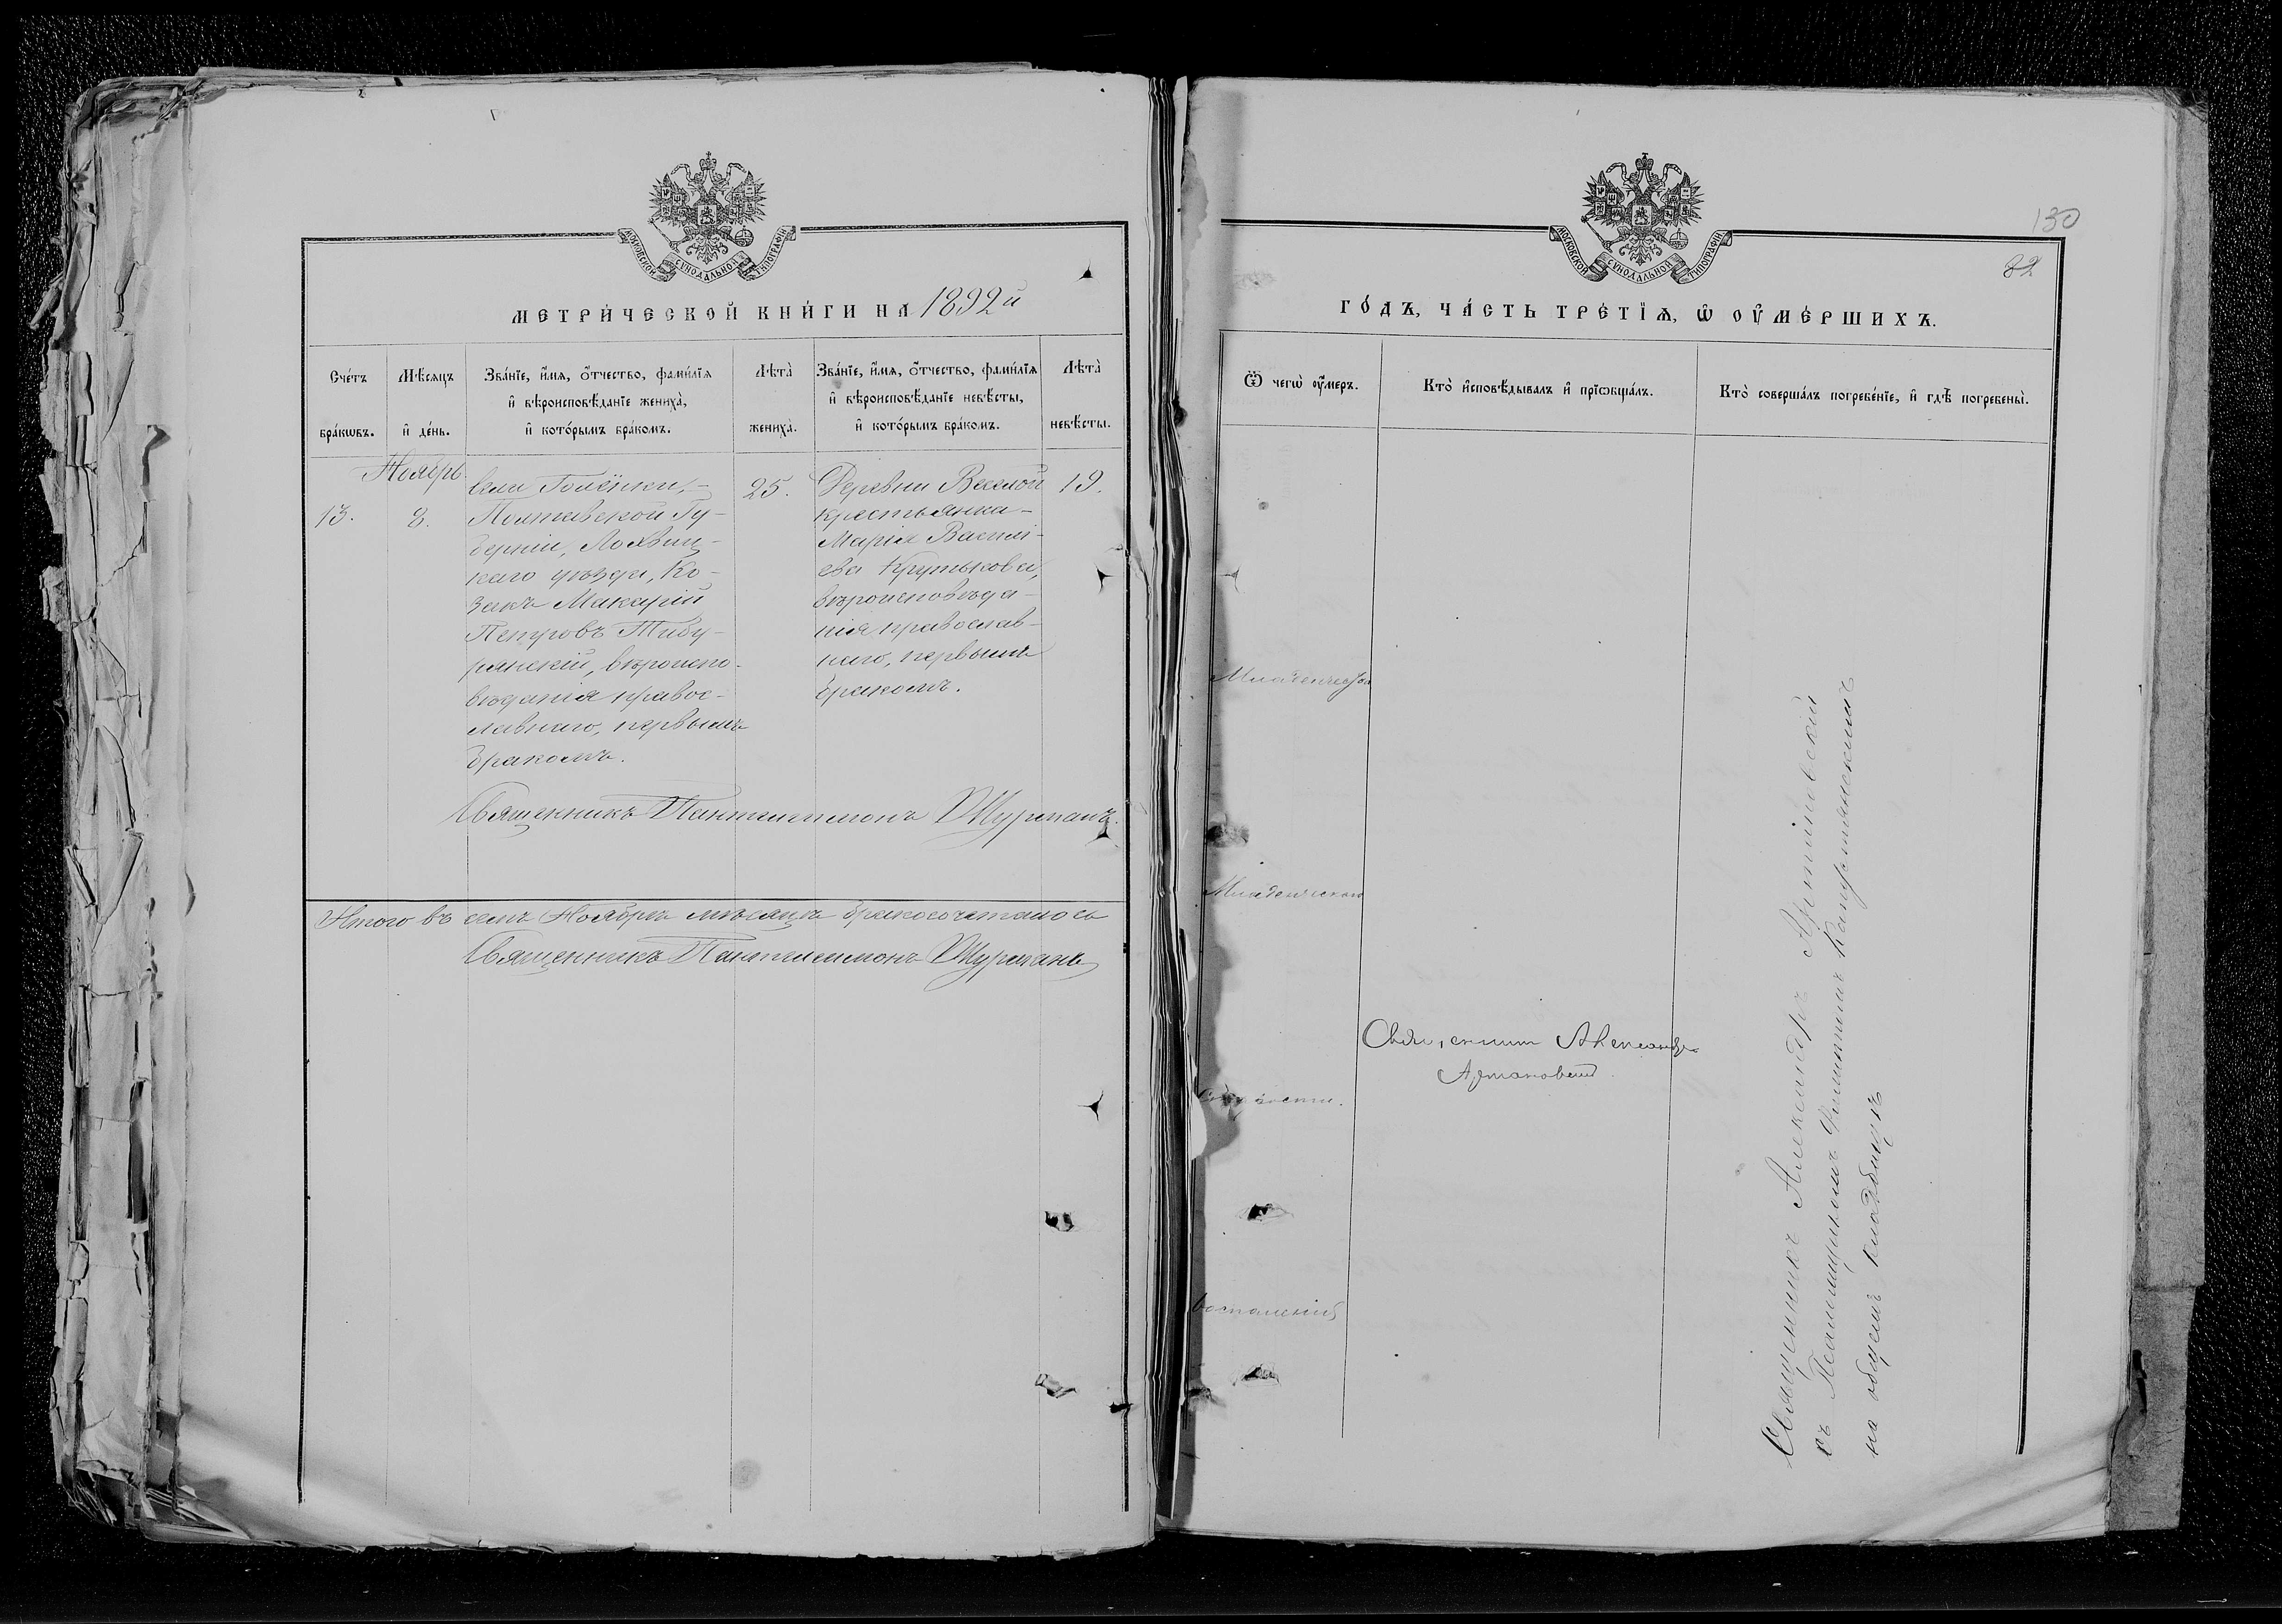 МОСКОВСКОЙ СѴНОДАЛЬНОЙ ТИПОГРАФІИ
МЕТРИ́ЧЕСКОЙ КНИ́ГИ НА 1892й
Сче́тъ бра́кωвъ.
Мѣ́сяцъ и҆ де́нь.
Зва́нїе, и҆́мя, ѻ҆́тчество, фами́лїя
и҆ вѣроисповѣ́данїе жениха̀,
и҆ кото́рымъ бра́комъ.
Лѣта̀ жениха̀.
Зва́нїе, и҆́мя, ѻ҆́тчество, фами́лїя
и҆ вѣроисповѣ́данїе невѣ́сты,
и҆ кото́рымъ бра́комъ.
Лѣта̀ невѣ́сты.
Ноябрь.
13.
8.
Села Голёнки,-
Полтавской Гу-
берніи, Лохвиц-
каго уѣзда, Ко-
закъ Макарій
Петровъ Тибу-
рянскій, вѣроиспо-
вѣданія правос-
лавнаго, первымъ
бракомъ.
25.
Деревни Веселой
крестьянка-
Марія Василі-
ева Крутькова,
вѣроисповѣда-
нія православ-
наго, первымъ
бракомъ.
19.
Священникъ Пантелеимонъ
Итого въ семъ Ноябрѣ мѣсяцѣ бракосочеталось
Священникъ Пантелеимонъ
130
82
МОСКОВСКОЙ СѴНОДАЛЬНОЙ ТИПОГРАФІИ
ГО́ДЪ, ЧА́СТЬ ТРЕ́ТЇѦ, Ѡ ОУ҆МЕ́РШИХЪ.
Ѿ чегѡ̀ ᲂу҆́меръ.
Кто̀ и҆сповѣ́дывалъ и҆ прїѡбща́лъ.
Кто̀ соверша́лъ погребе́нїе, и҆ гдѣ̀ погребены̀.
Младенческой
Александръ
Артановскій
воспаленія
Священникъ Александръ Артановскій
съ Псаломщикомъ
на общемъ кладбищѣ